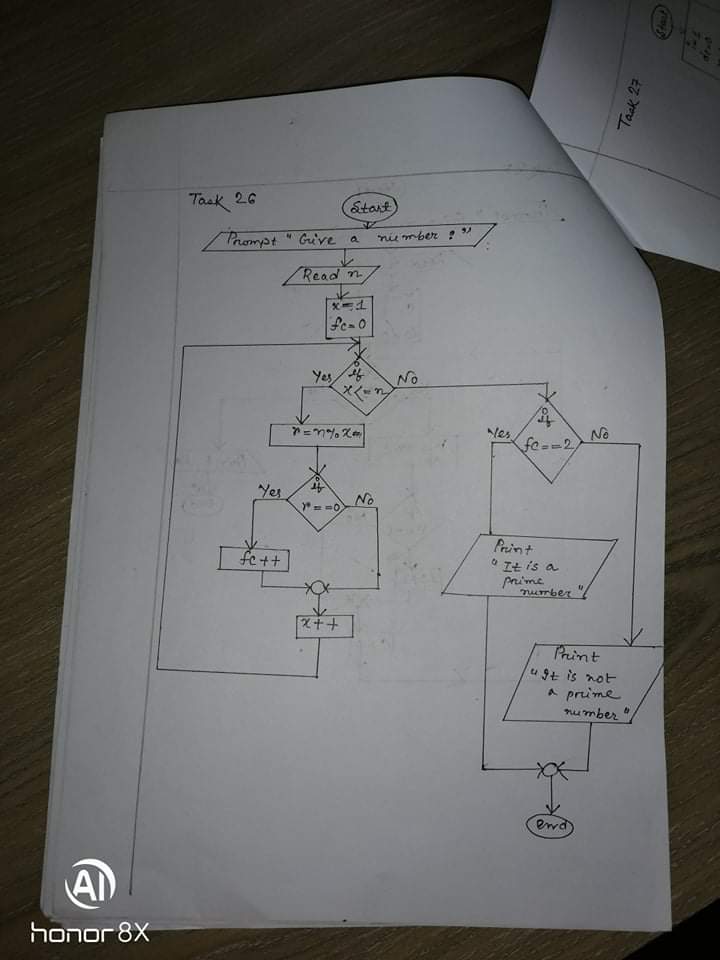 Task 26
Start
Prompt "Give a number:"
Read n
x=1
fc=0
if
x<=n
Yes
No
r=n%x
if
r==0
Yes
No
fc++
x++
if
fc==2
Yes
No
Print
"It is a
prime
number"
Print
"It is not
a prime
number"
end
Task 27
Start
AI
honor 8X